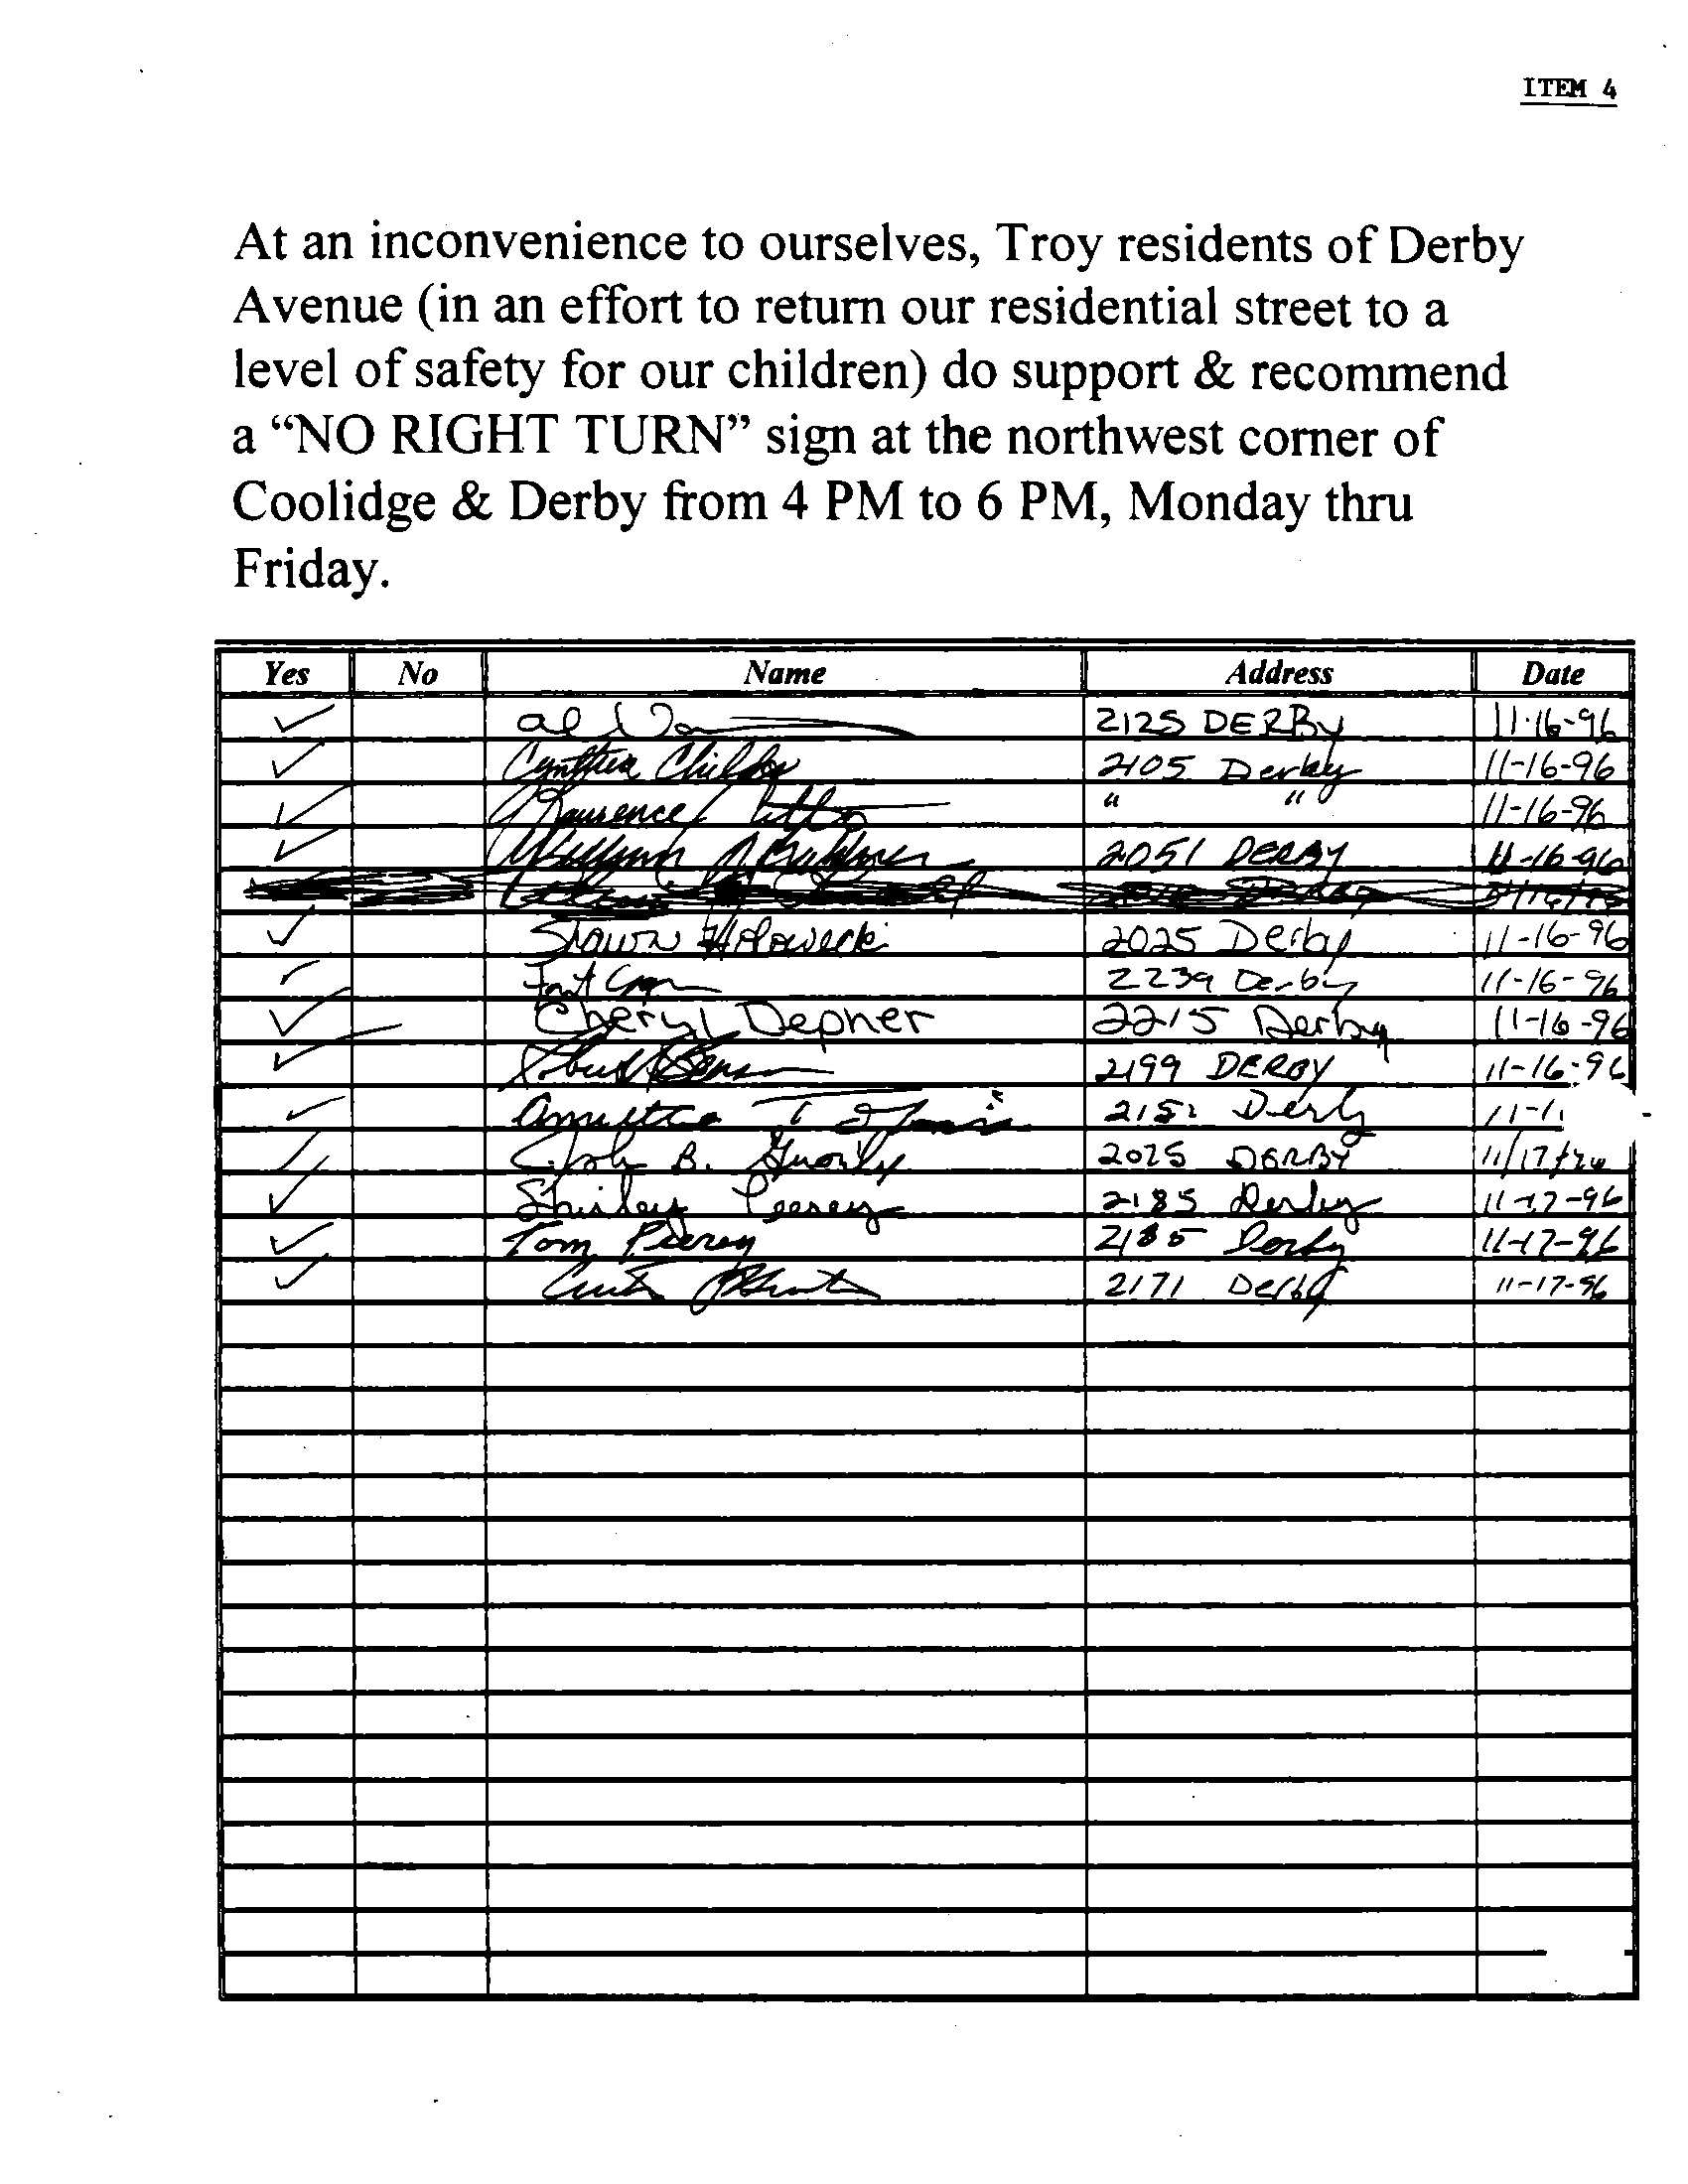 ITEM 4
At an inconvenience to ourselves, Troy residents of Derby
Avenue (in an effort to return our residential street to a
level of safety for our children) do support & recommend
a “NO RIGHT TURN” sign at the northwest corner of
Coolidge & Derby from 4 PM to 6 PM, Monday thru
Friday.
Yes No Name Address Date
✓ al 2125 DERBY 11-16-96
✓ Cynthia 2105 Derby 11-16-96
✓ Laurence " " 11-16-96
✓ 2051 DERBY 11-16-96
✓ Shawn Holowecki 2025 Derby 11-16-96
✓ 2239 Derby 11-16-96
✓ Cheryl Depner 2215 Derby 11-16-96
✓ 2199 DERBY 11-16-96
✓ Derby
✓ B. 2025 DERBY
✓ Shirley 2185 Derby 11-17-96
✓ Tom 2185 Derby 11-17-96
✓ 2171 Derby 11-17-96